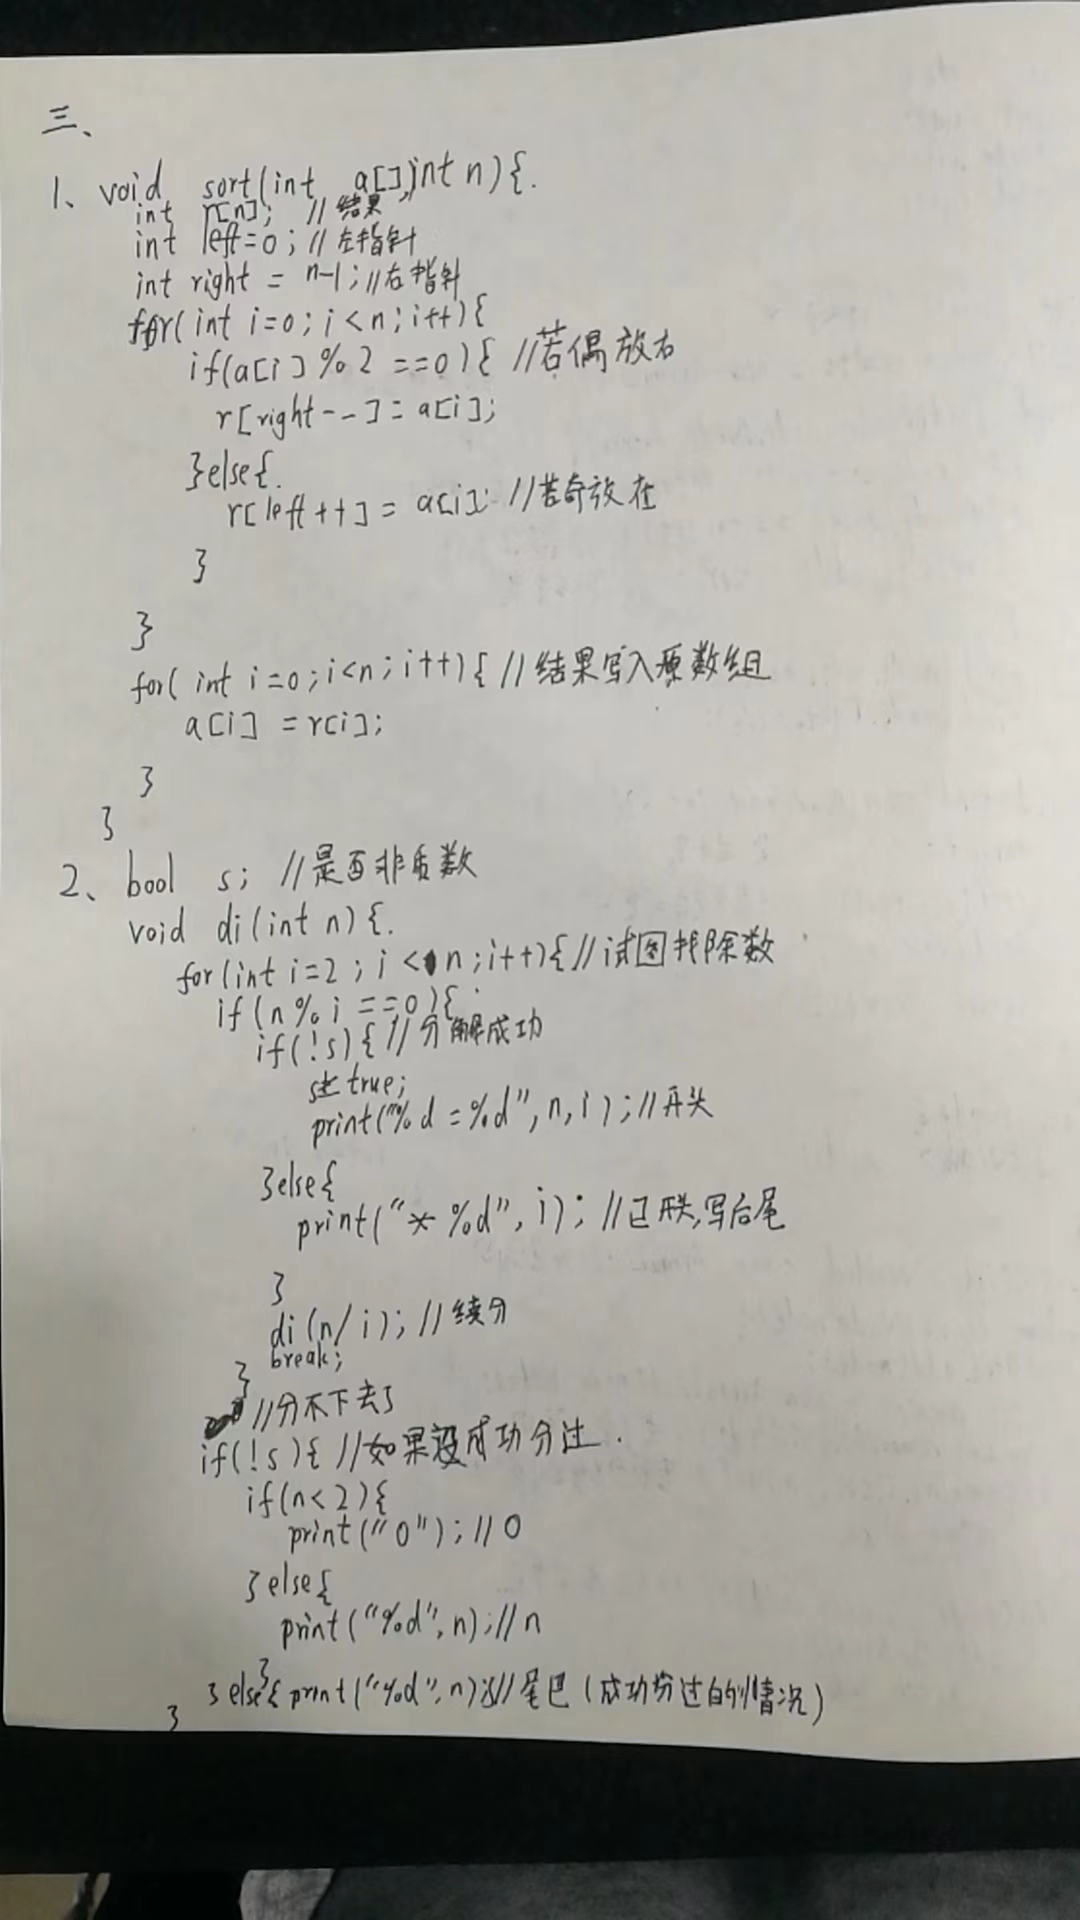 三、
1、void sort(int a[],int n){
int r[n]; //结果
int left=0; //左指针
int right = n-1; //右指针
for(int i=0; i<n; i++){
if(a[i]%2==0){ //若偶放右
r[right--]=a[i];
}else{
r[left++]=a[i]; //若奇放在
}
}
for(int i=0;i<n;i++){ //结果写入原数组
a[i]=r[i];
}
}
2、bool s; //是否非质数
void di(int n){
for(int i=2; i<n;i++){ //试图找除数
if(n%i==0){
if(!s){ //分解成功
s=true;
print("%d=%d",n,i); //开头
}else{
print("*%d",i); //已开头,写后尾
}
di(n/i); //续分
break;
}
//分不下去了
if(!s){ //如果没成功分过.
if(n<2){
print("0"); //0
}else{
print("%d",n);//n
}
}else{print("%d",n);}//尾巴(成功分过的情况)
}